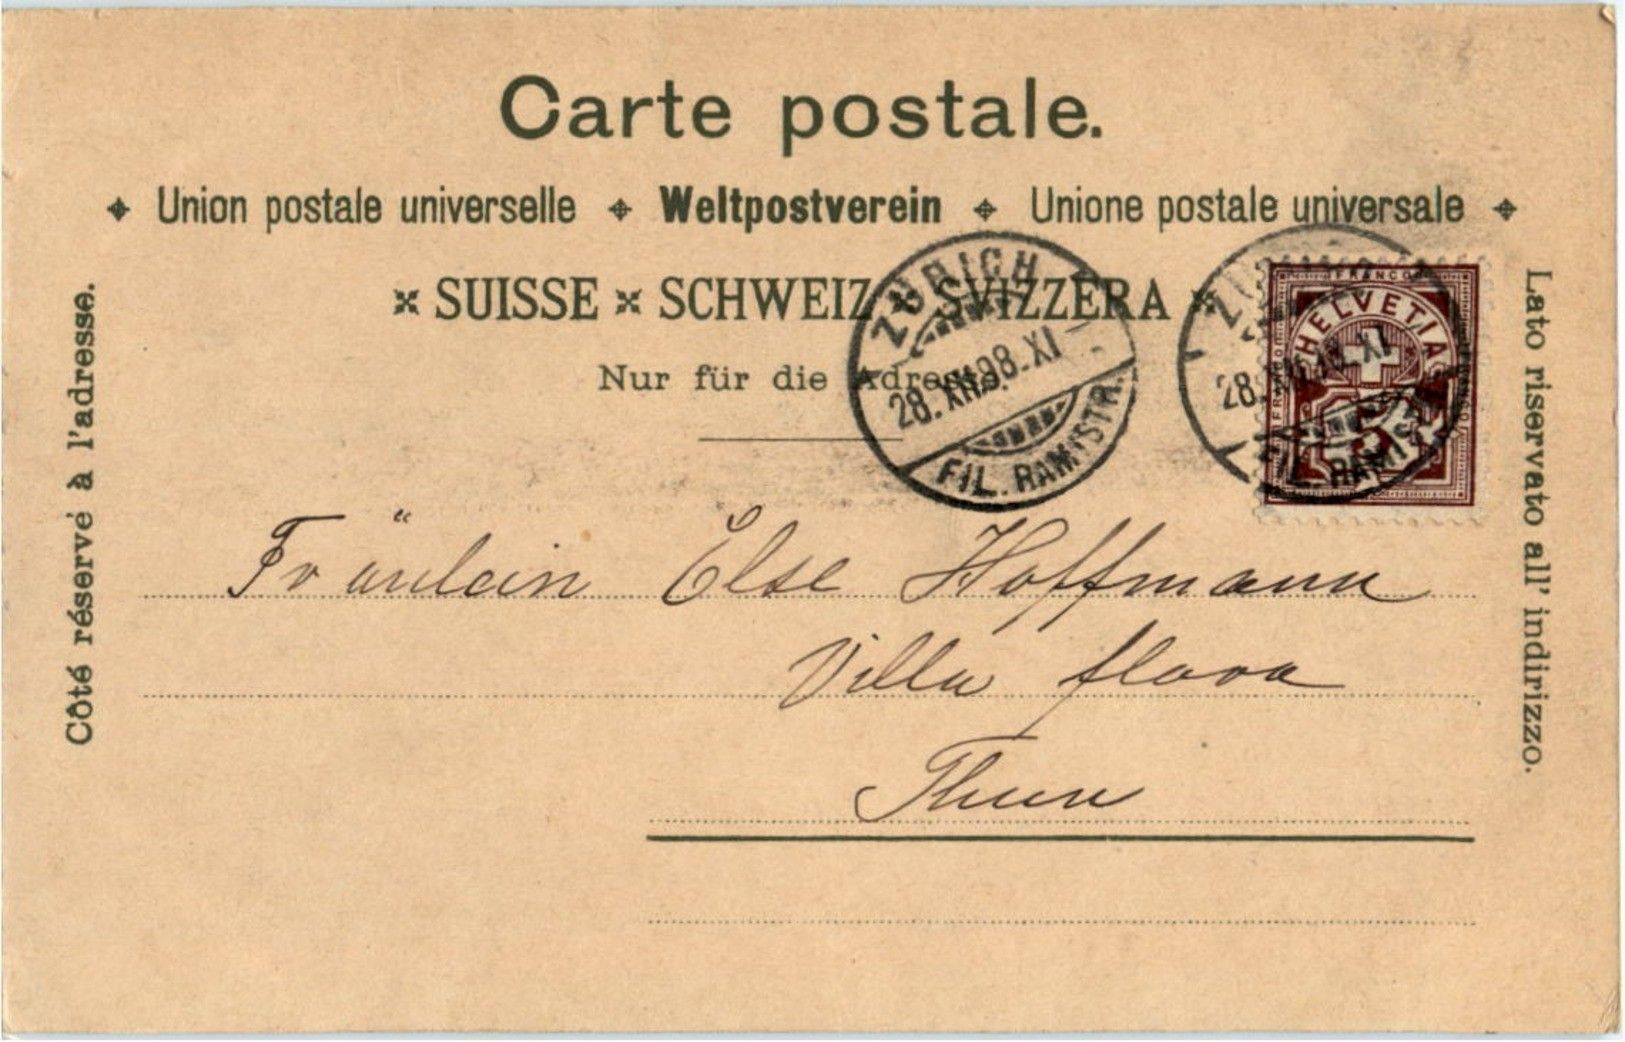 Carte postale.
Union postale universelle Weltpostverein Unione postale universale
SUISSE SCHWEIZ SVIZZERA
Nur für die Adresse.
Côté réservé à l'adresse.
Lato riservato all' indirizzo.
ZÜRICH
28.XII.98.XI
FIL. RÄMISTR.
ZÜRICH
28.XII.98.XI
FIL. RÄMISTR.
FRANCO
HELVETIA
FRANCO
FRANCO
5
Fräulein Else Hoffmann
Villa flora
Thun